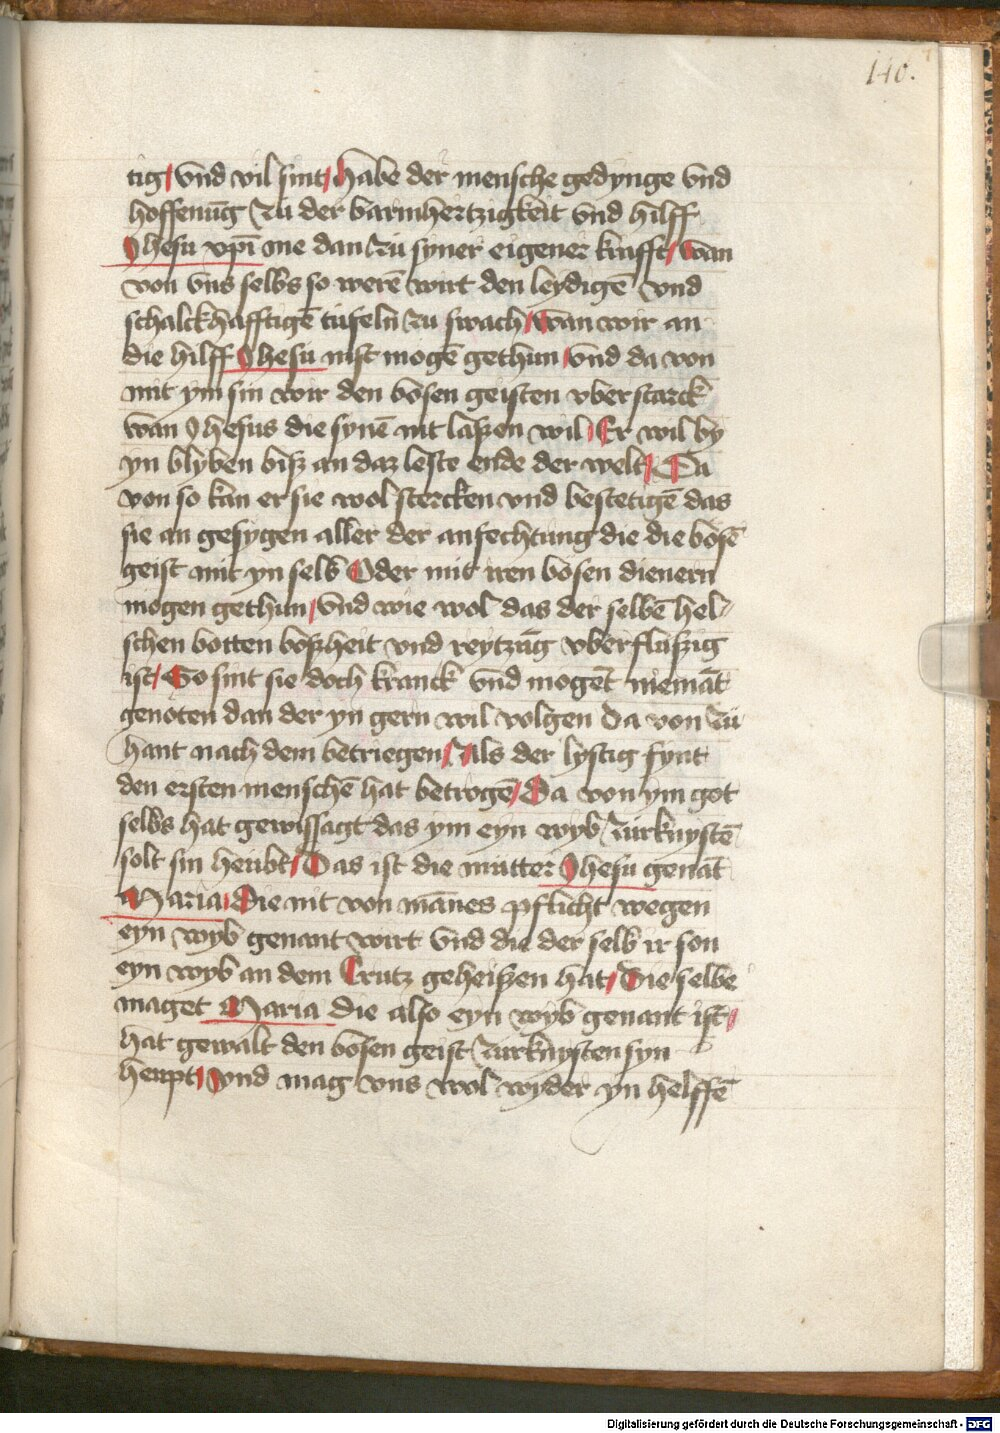 140.
tig / vnd vil sint / Habe der mensche gedynge vnd
hoffenūg zu der barmhertzigkeit vnd hilff
Jhesu xpī me dan zu syner eigener krafft / wan
von vns selbs so werē wirt den leydigē vnd
schalckhafftigē tüfeln zu swach / wan wir an
die hilff Jhesu nist mogē gethun / vnd da von
mit ym sin wir den bösen geisten vberstarck
wan Jhesus die synē nit laßen wil / Er wil by
yn blyben biß an daz leste ende der welt / Da
von so kan er sie wol stercken vnd bestetigē das
sie an gesygen aller der anfechtung die die bösē
geist mit yn selb Oder mit iren bösen dienern
mogen gethun / vnd wie wol das der selbē hel⸗
schen botten boßheit vnd reytzūg vberflüßig
ist / So sint sie doch kranck vnd mogēt niemāt
genöten dan der yn gern wil volgen Da von zu
hant nach dem betriegen / Als der lystig fynt
den ersten menschē hat betrogē / Da von ym got
selbs hat gewissagt das ym eyn wyb zurknystē
solt sin heübt / Das ist die mutter Jhesu genāt
Maria / Die nit von mānes pflicht wegen
eyn wyb genant wirt vnd die der selb ir son
eyn wyb an dem Crutz geheißen hat / Die selbe
maget Maria die also eyn wyb genant ist /
hat gewalt den bösen geist zurknysten syn
heupt / vnd mag vns wol wyder yn helffē
Digitalisierung gefördert durch die Deutsche Forschungsgemeinschaft - DFG